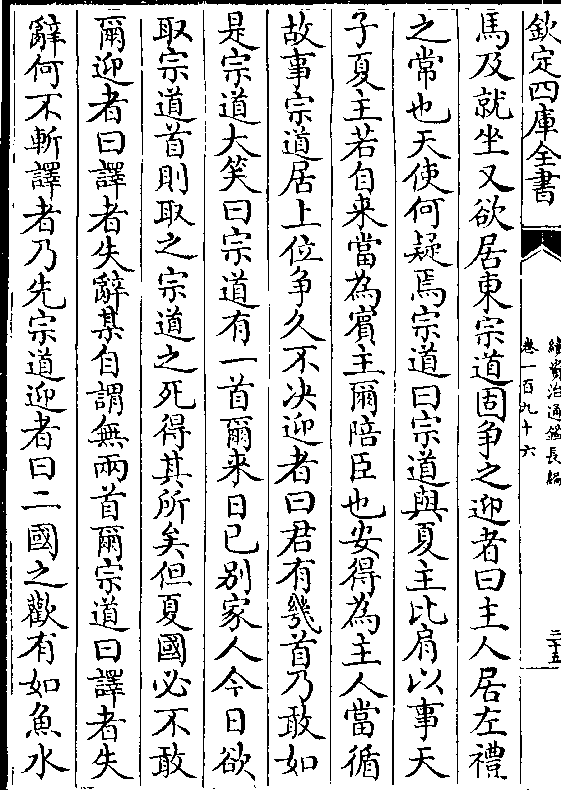 欽定四庫全書
續資治通鑑長編
卷一百九十六
三十五
馬及就坐又欲居東宗道固争之迎者曰主人居左禮
之常也天使何疑焉宗道曰宗道與夏主比肩以事天
子夏主若自来當為賓主爾陪臣也安得為主人當循
故事宗道居上位争久不決迎者曰君有㡬首乃敢如
是宗道大笑曰宗道有一首爾来日已别家人今日欲
取宗道首則取之宗道之死得其所矣但夏國必不敢
爾迎者曰譯者失辭某自謂無兩首爾宗道曰譯者失
辭何不斬譯者乃先宗道迎者曰二國之歡有如魚水